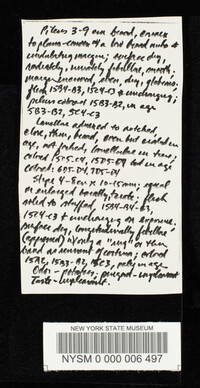 Pileus 3-9 cm broad, convex
to plano-convex c a low broad umbo &
undulating margin; surface dry,
innately, minutely fibrillose, smooth,
margin incurved, even, dry, glabrous.
flesh 15B4-B3, 15C4-C3 & unchanging;
pileus colored 15B3-B2, in age
5B3-B2, 5C4-C3
Lamellae adnexed to notched,
close, thin, broad, even but eroded in
age, not forked, lamellulae in tiers;
colored
colored: 6D5-D4, 7D5-D4
Stipe 4-8 cm x 10-15 mm; equal
or enlarged basally, terete; flesh
solid to stuffed, 15B4-B3
15C4-C3 & unchanging on exposure.
surface dry, longitudinally fibrillose
(appressed) a "ring" or thin
band as remnant of cortina; colored
15A2, 15B3-B2, pale in age
Odor - potatoes, pungent-unpleasant
Taste - unpleasant.
NEW YORK STATE MUSEUM
NYSM 0 000 006 497